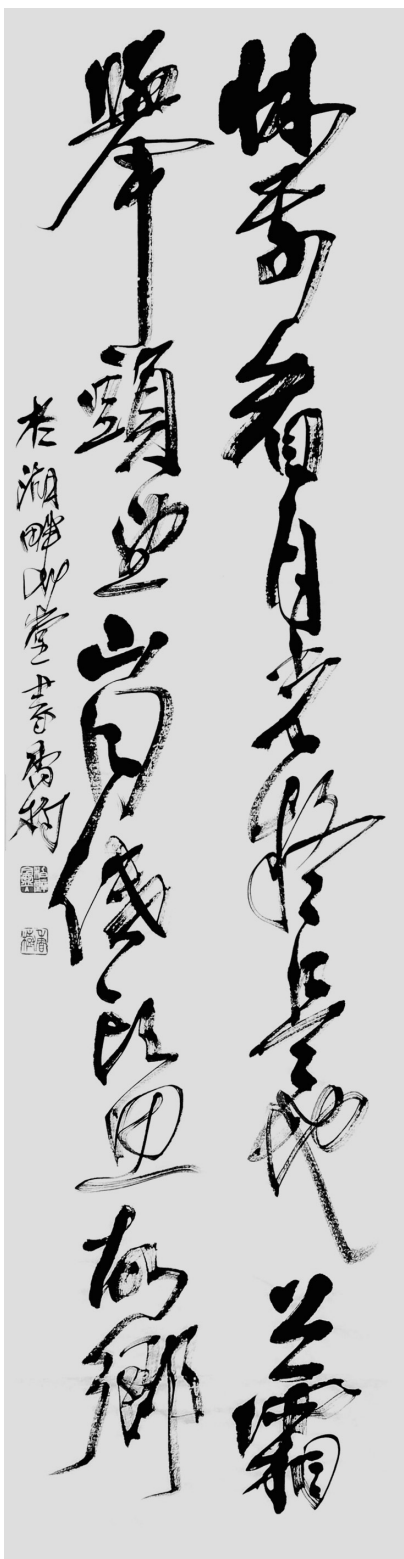 牀前看月光疑是地上霜
舉頭望山月低頭思故鄉
於湖畔堂樹